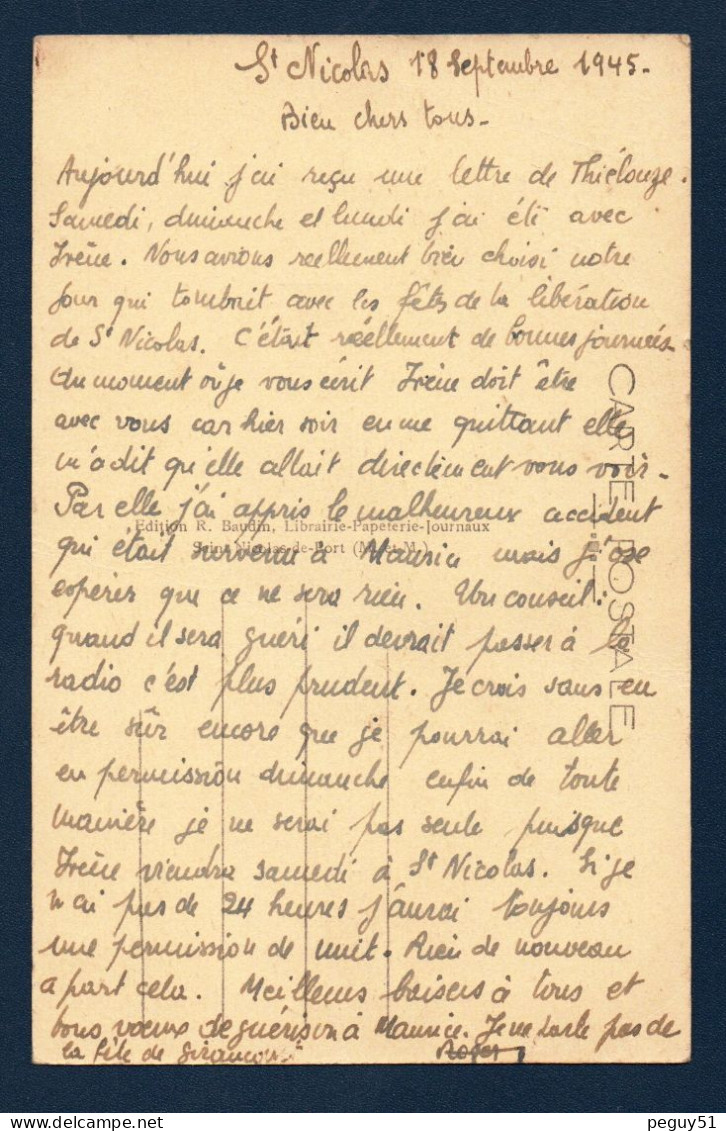 St Nicolas 18 Septembre 1945.
Bien chers tous.
Aujourd'hui j'ai reçu une lettre de Thiélouze.
Samedi, dimanche et lundi j'ai été avec
Irène. Nous avions réellement bien choisi notre
jour qui tombait avec les fêtes de la libération
de St Nicolas. C'était réellement de bonnes journées
Au moment où je vous écrit Irène doit être
avec vous car hier soir en me quittant elle
m'a dit qu'elle allait directement vous voir.
Par elle j'ai appris le malheureux accident
Edition R. Baudin, Librairie-Papeterie-Journaux
qui était survenu à Maurice mais j'ose
Saint-Nicolas-de-Port (M.-et-M.)
espérer que ce ne sera rien. Un conseil:
quand il sera guéri il devrait passer à la
radio c'est plus prudent. Je crois sans en
être sûr encore que je pourrai aller
en permission dimanche enfin de toute
manière je ne serai pas seule puisque
Irène viendra samedi à St Nicolas. Si je
n'ai pas de 24 heures j'aurai toujours
une permission de nuit. Rien de nouveau
a part cela. Meilleurs baisers à tous et
bons voeux de guérison à Maurice. Je ne parle pas de
la fête de Girancourt
Roger
CARTE POSTALE
peguy51